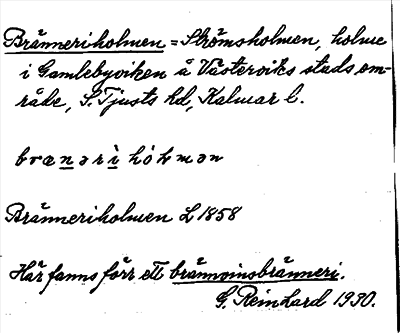 Bränneriholmen = Strömsholmen, holme
i Gamlebyviken å Västerviks stads om-
råde, S. Tjusts hd, Kalmar l.
brænəri hólmən
Bränneriholmen L 1858
Här fanns förr ett brännvinsbränneri.
G. Reinhard 1930.